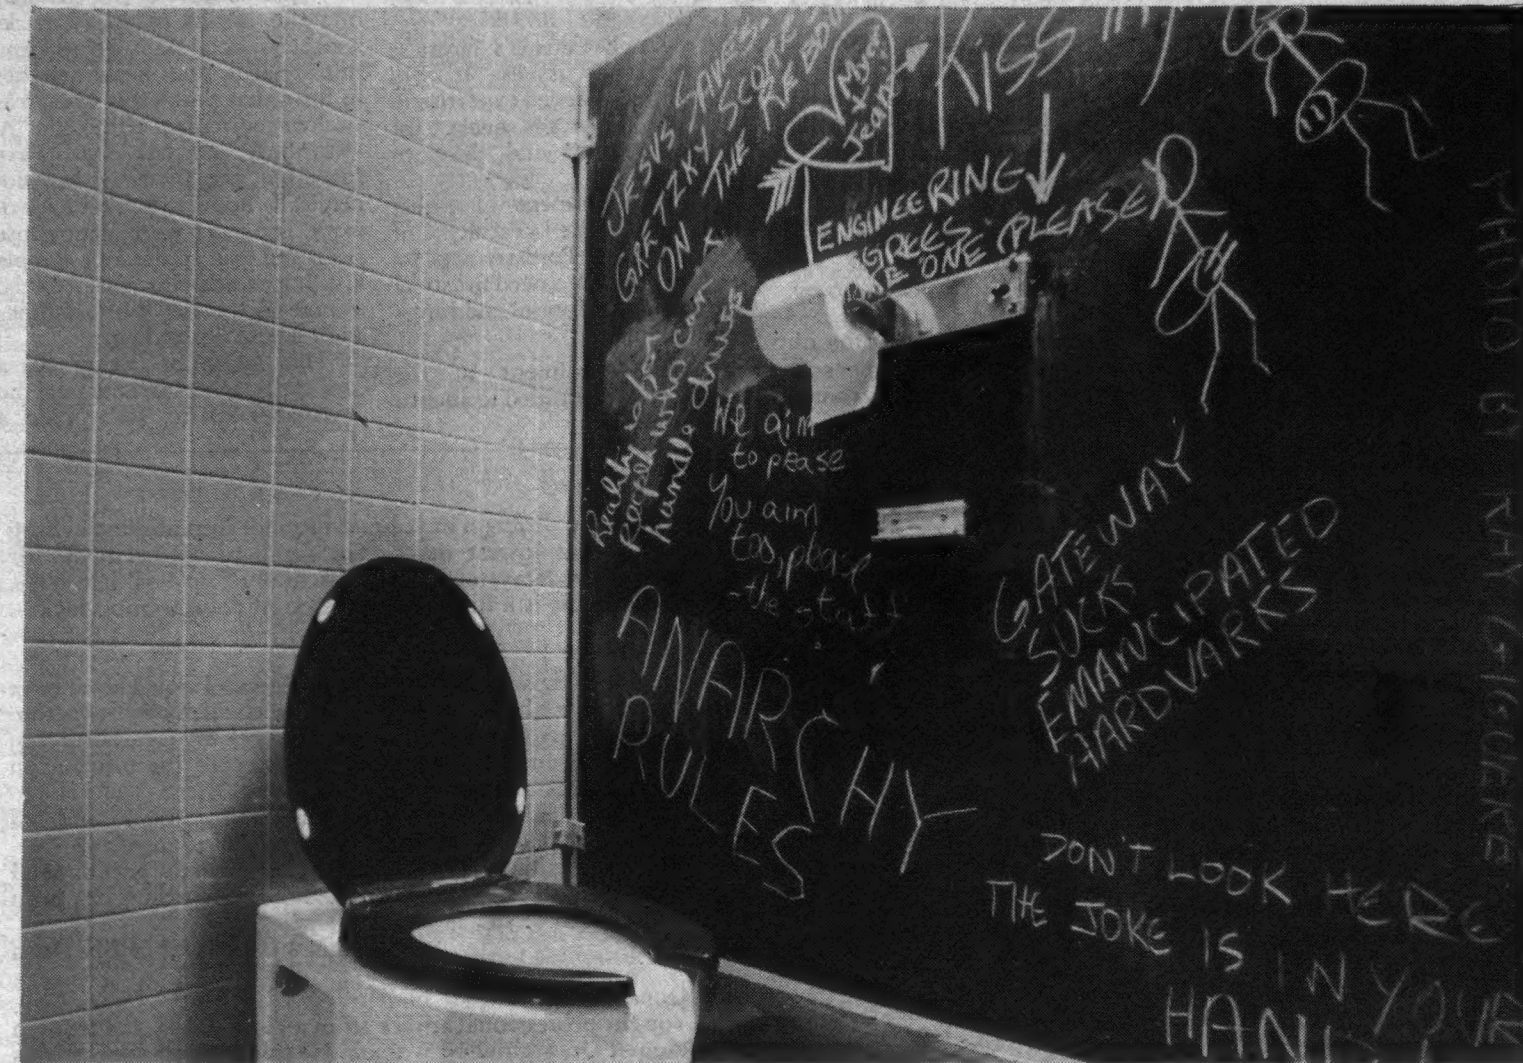 JESUS SAVES
GRETZKY SCORES
ON THE REBOU
My
+
Jean
KISS MY
ENGINEERING
GREES
ONE (PLEASE)
Reality is for
people who can
handle drugs
We aim
to please
You aim
too, please
-the staff
ANARCHY
RULES
GATEWAY
SUCKS
EMANCIPATED
HARDVARKS
DON'T LOOK HERE
THE JOKE IS IN YOUR
HAND
PHOTO BY RAY GIGUERE